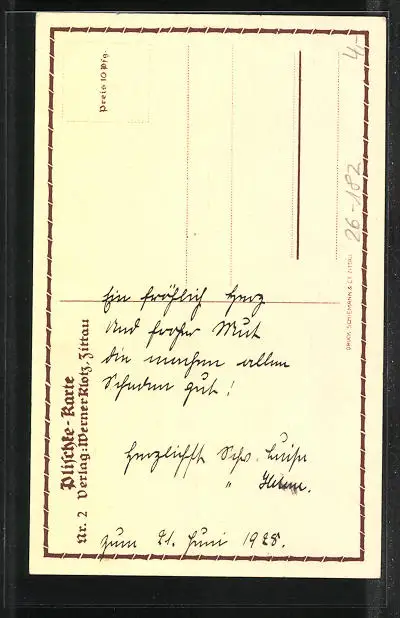 Preis 10 Pfg.
4,-
26-182
Plischke-Karte
Nr. 2 Verlag: Werner Klotz, Zittau
Ein fröhlich Herz
und froher Mut
die machen allen
Schaden gut!
Herzlichst Schw. Luise
"
zum 21. Juni 1928.